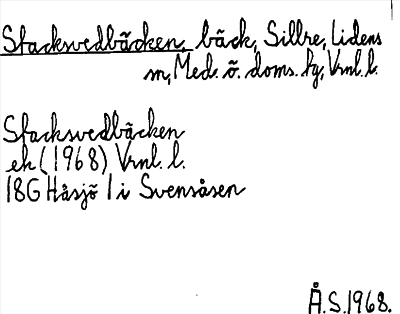 Stacksvedbäcken, bäck, Sillre, Lidens
sn, Med. ö. doms. fg, Vrnl. l.
Stacksvedbäcken
ek (1968) Vrnl. l.
18G Håsjö 1 i Svensåsen
Å.S. 1968.